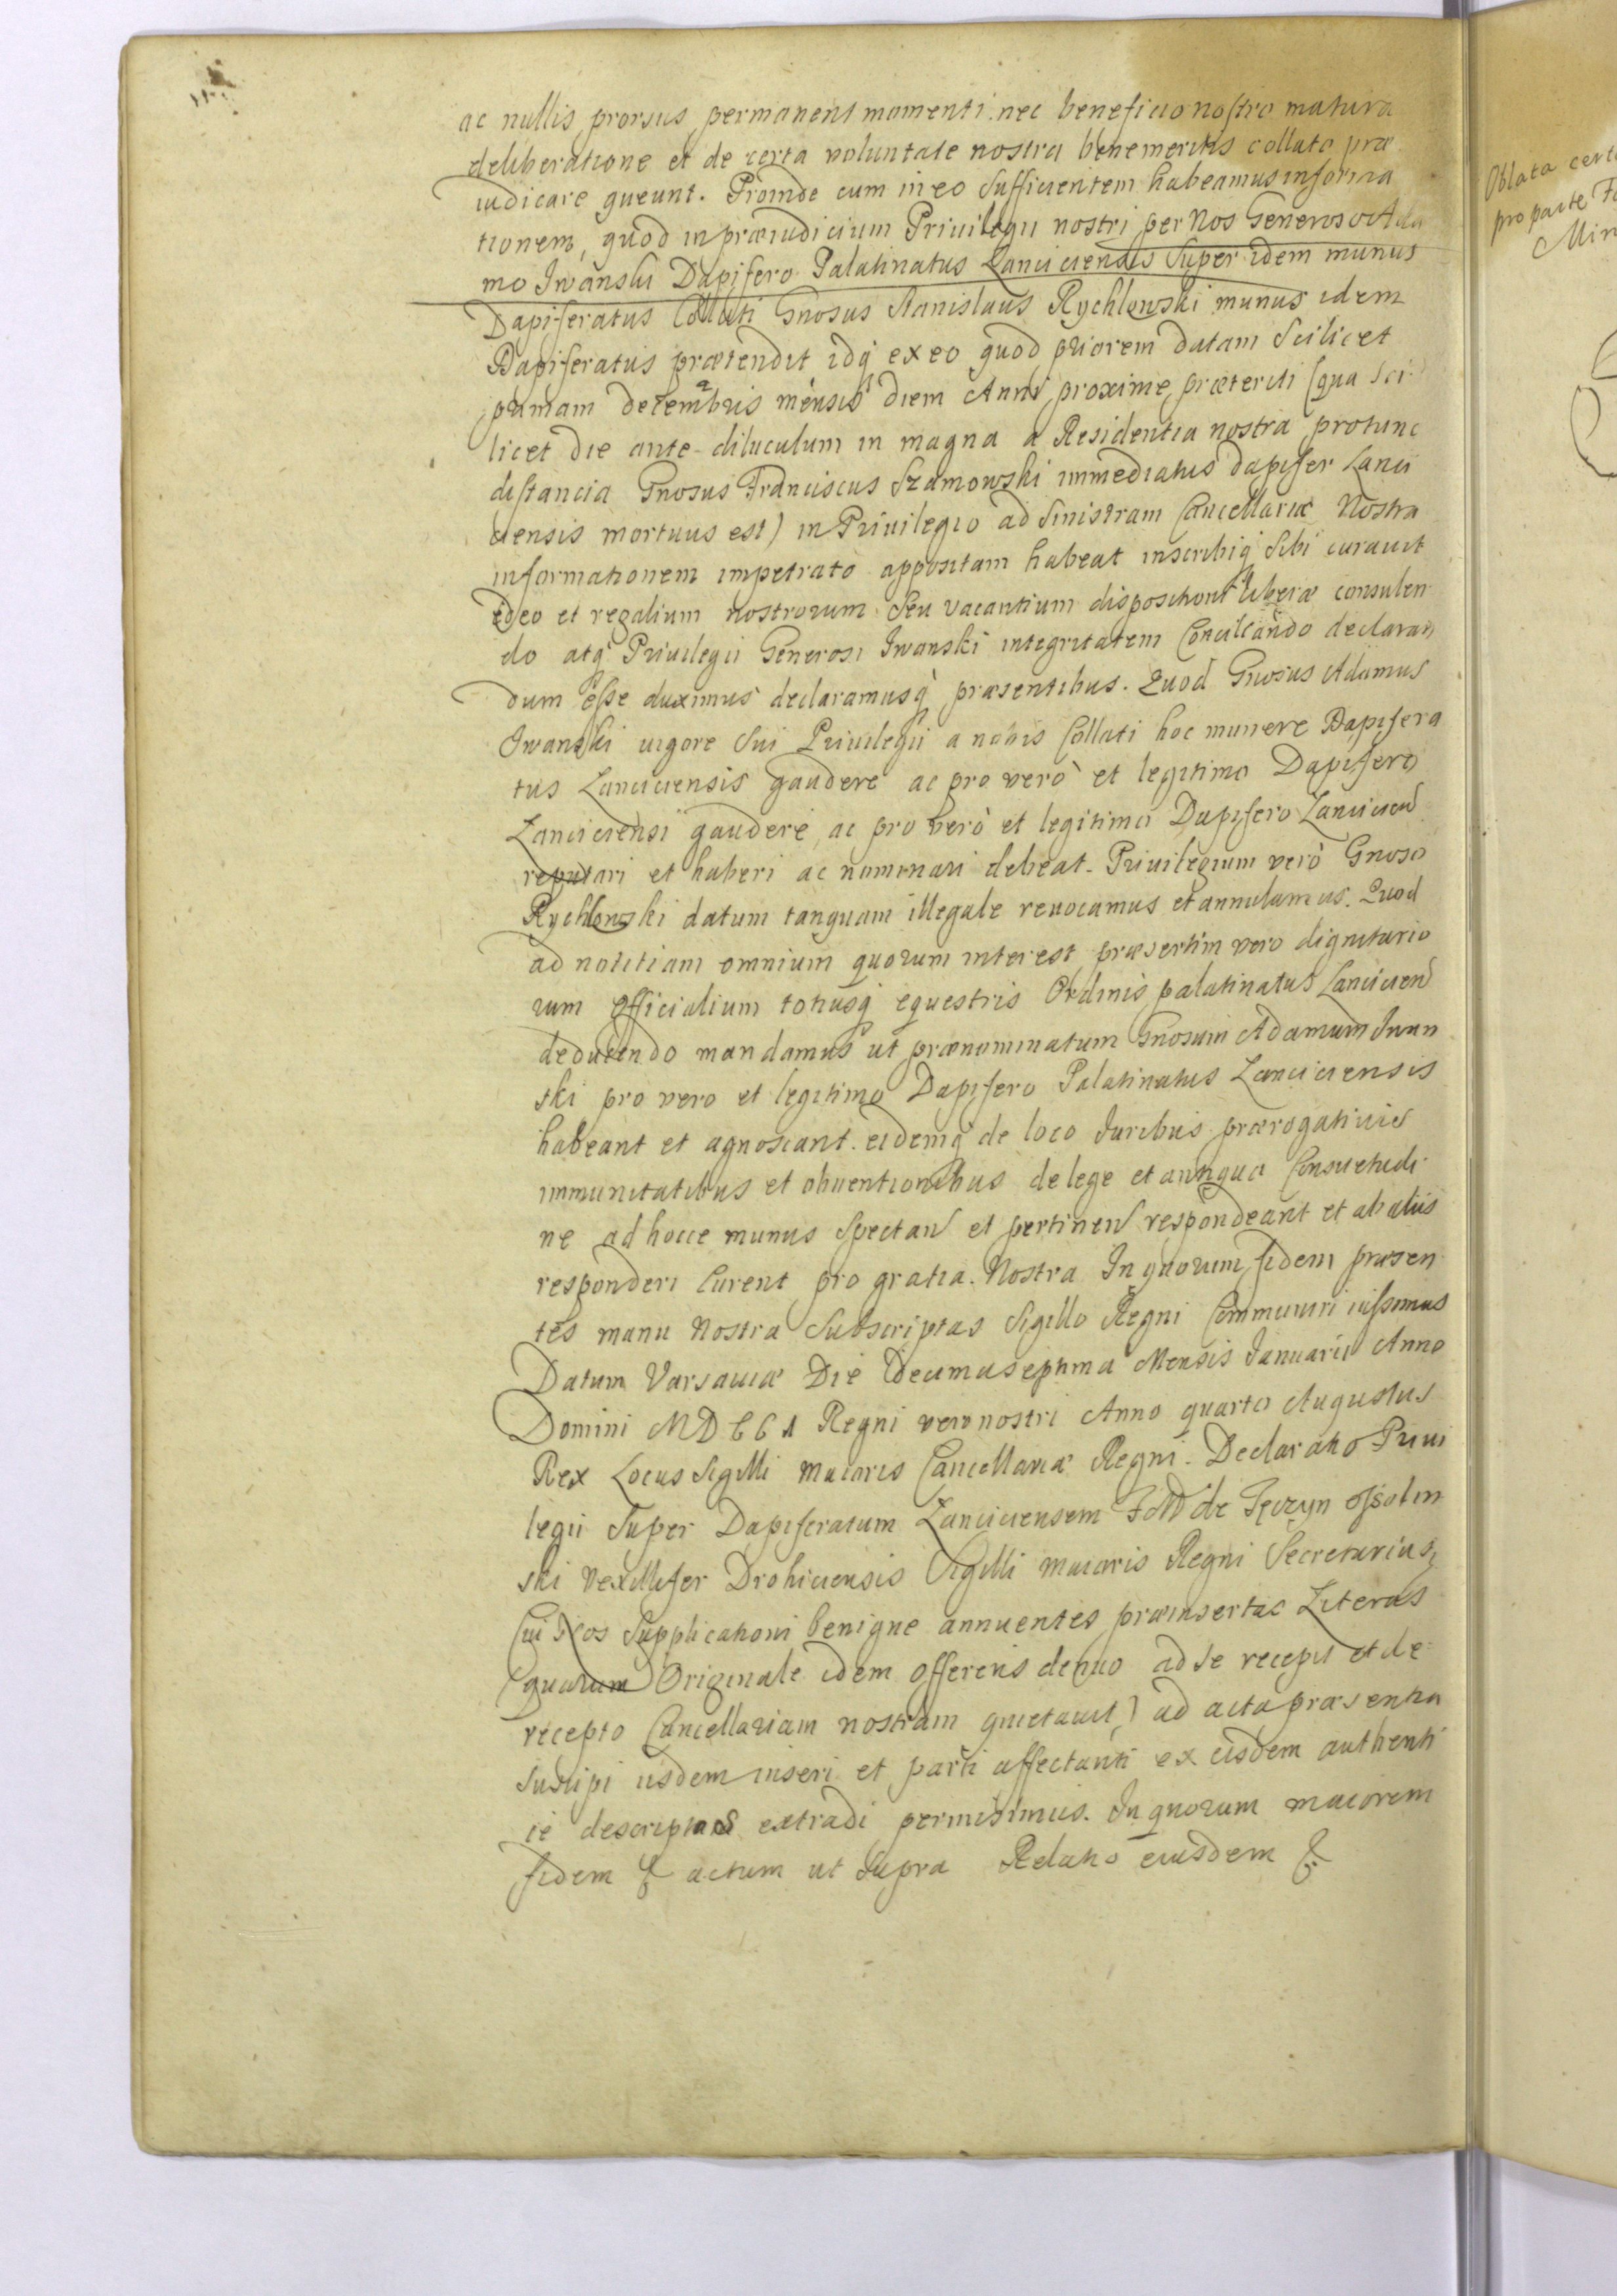 ac nullis prorsus permanent momenti nec beneficio nostro matura
deliberatione et de certa voluntate nostra benemeritis collato præ
iudicare queunt. Proinde cum in eo sufficientem habeamus informa
tionem, quod in præiudicium Priuilegii nostri per Nos Generoso Ada
mo Iwanski Dapifero Palatinatus Lanciciensis super idem munus
Dapiferatus Collati Gnosus Stanislaus Rychlowski munus idem
Dapiferatus prætendit idq ex eo quod priorem datam Scilicet
primam decembris mensis diem Anni proxime præteriti (qua Sci
licet die ante diluculum in magna a Residentia nostra protunc
distancia Gnosus Franciscus Szamowski immediatus dapifer Lanci
ciensis mortuus est) in Priuilegio ad Sinistram Cancellariæ Nostra
informationem impetrato appositam habeat inscribiq Sibi curauit
ideo et regalium nostrorum Seu vacantium dispositioni liberæ consulen
do atq Priuilegii Generosi Iwanski integritatem Conciliando declaran
dum esse duximus declaramusq præsentibus. Quod Gnosus Adamus
Iwanski uigore Sui Priuilegii a nobis Collati hoc munere Dapifera
tus Lanciciensis gaudere ac pro verò et legitimo Dapifero
Lanciciensi gaudere, ac pro verò et legitimo Dapifero Lancicien
reputari et haberi ac nominari debeat. Priuilegium verò Gnoso
Rychlowski datum tanquam illegale reuocamus et annulamus. Quod
ad notitiam omnium quorum interest, præsertim vero dignitario
rum Officialium totiusq equestris Ordinis palatinatus Lancicien
deducendo mandamus ut prænominatum Gnosum Adamum Iwan
ski pro vero et legitimo Dapifero Palatinatus Lanciciensis
habeant et agnoscant. eidemq de loco Iuribus prærogatiuis
immunitatibus et obuentionibus de lege et antiqua Consuetudi
ne ad hocce munus Spectan et pertinen respondeant et ab aliis
responderi Curent pro gratia Nostra In quorum fidem præsen
tes manu Nostra Subscriptas Sigillo Regni Communiri iussimus
Datum Varsauiæ Die decimaseptima Mensis Ianuarii Anno
Domini MDCCI Regni vero nostri Anno quarto Augustus
Rex Locus Sigilli maioris Cancellariæ Regni. Declaratio Priui
legii Super Dapiferatum Lanciciensem de Tęczyn Ossolin
ski Vexillifer Drohiciensis Sigilli maioris Regni Secretarius,
Cui Nos Supplicationi benigne annuentes præinsertas Literas
(quarum Originale idem offerens denuo ad se recepit et de
recepto Cancellariam nostram quietauit) ad acta præsentia
Suscipi iisdem inseri et parti affectanti ex eisdem authenti
ce descriptas extradi permisimus. In quorum maiorem
fidem & actum ut Supra Relatio eiusdem &
Oblata
pro parte